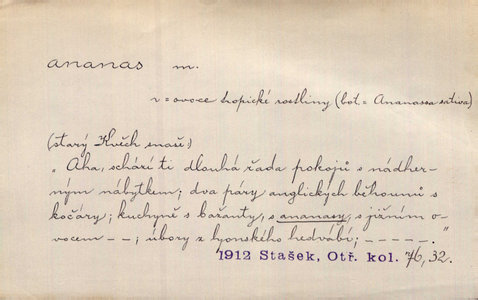 ananas m.
v = ovoce tropické rostliny (bot. = Ananassa sativa)
(starý Kvěch snaší:)
"Aha, schází ti dlouhá řada pokojů s nádher-
ným nábytkem; dva páry anglických běhounů s
kočáry; kuchyně s bažanty, s ananasy, s jižním o-
vocem - -; úbory z lyonského hedvábí; - - - - -."
1912 Stašek, Otř. kol. 76, 32.